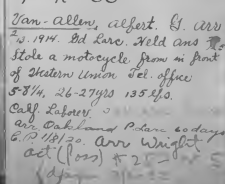 Van-Allen, Alfert. G. Arr
2s. 1914. Gd Larc. Held ans
Stole a motocycle from in front
of Western Union Tel. office
5-8¼, 26-27yrs 135 lbs.
Calf. Laborer.
Arr Oakland P. Larc 60 days
C.P 1/8/20. Arr Wright
act (Poss) $25-